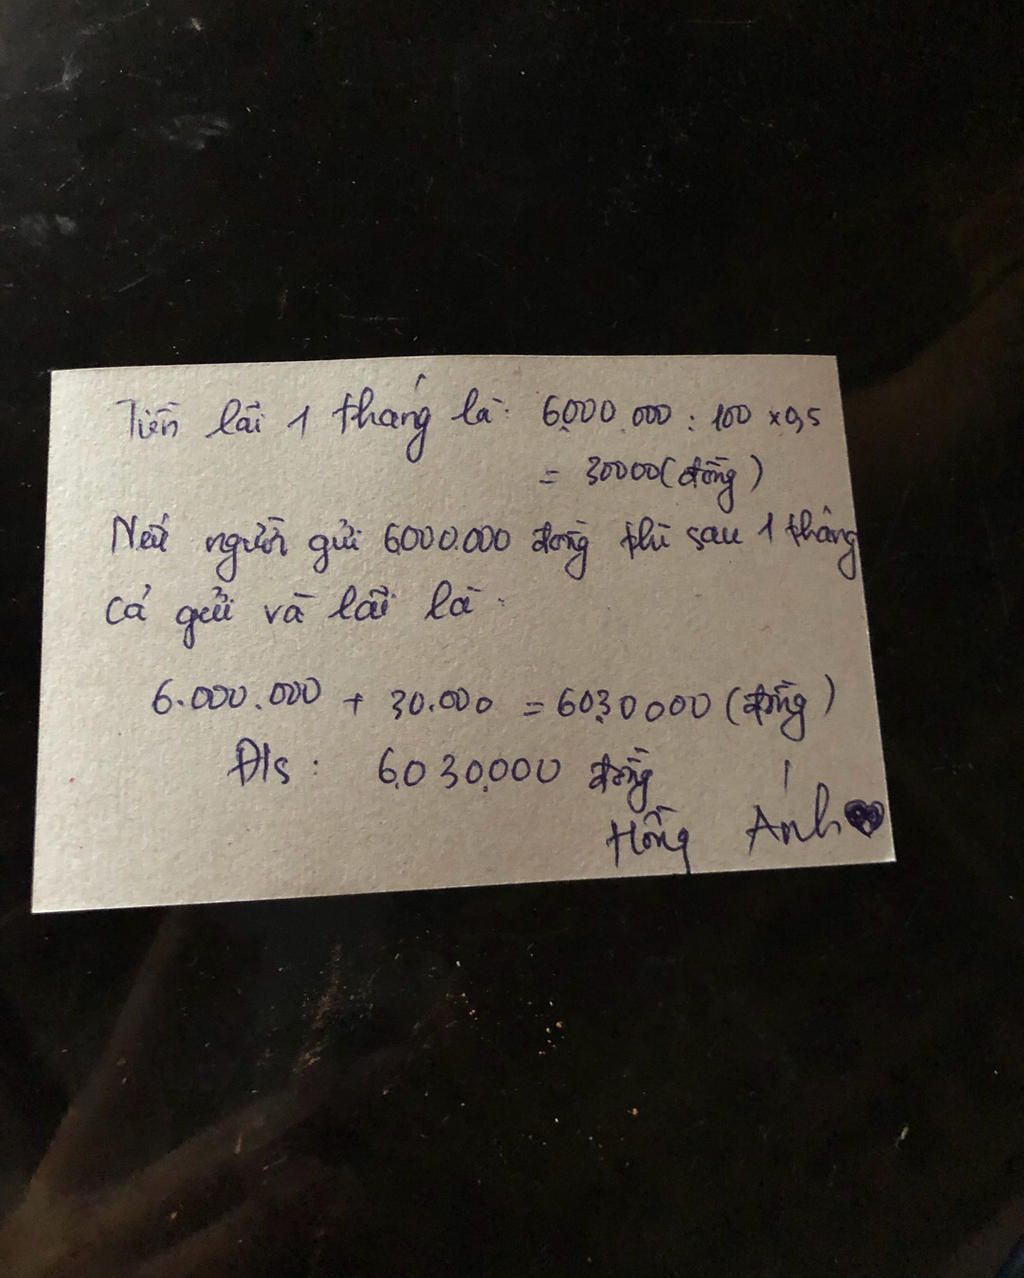 Tiền lãi 1 tháng là: 6.000.000 : 100 x 0,5
= 30000 (đồng)
Nếu người gửi 6000.000 đồng thì sau 1 tháng
cả gửi và lãi là:
6.000.000 + 30.000 = 6030000 (đồng)
Đ/s: 6.030.000 đồng
Hồng Ánh